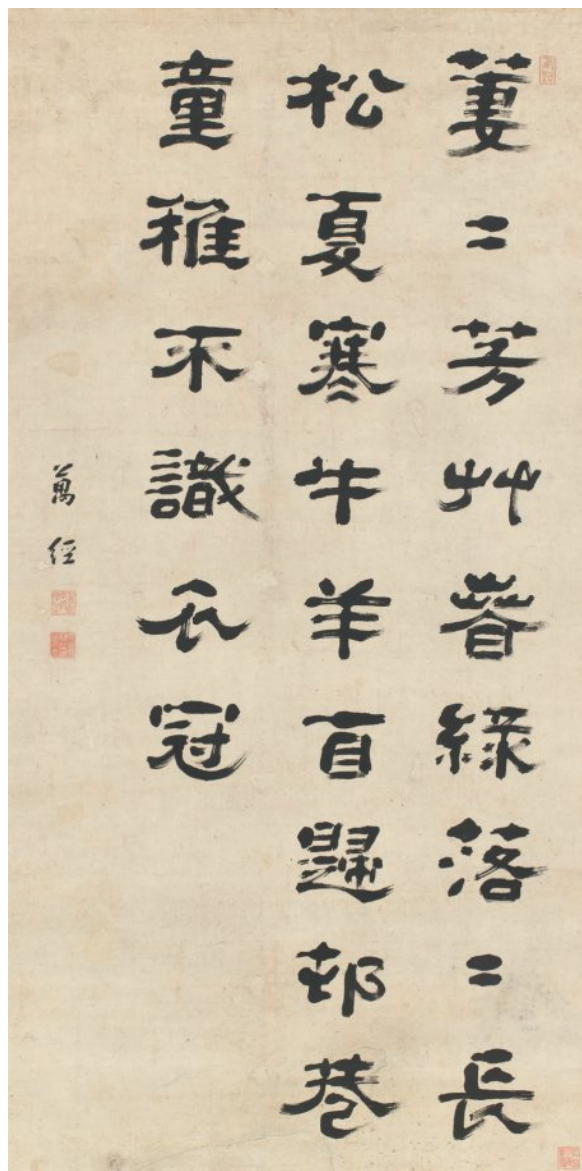 萋〻芳艸春綠落〻長
松夏寒牛羊自歸邨巷
童稚不識衣冠
萬經